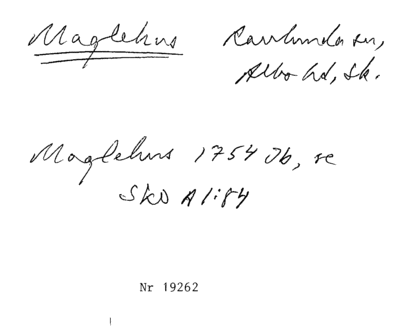 Maglehus Ravlunda sn,
Albo hd, Sk.
Maglehus 1754 Jb, se
SkO A1:84
Nr 19262